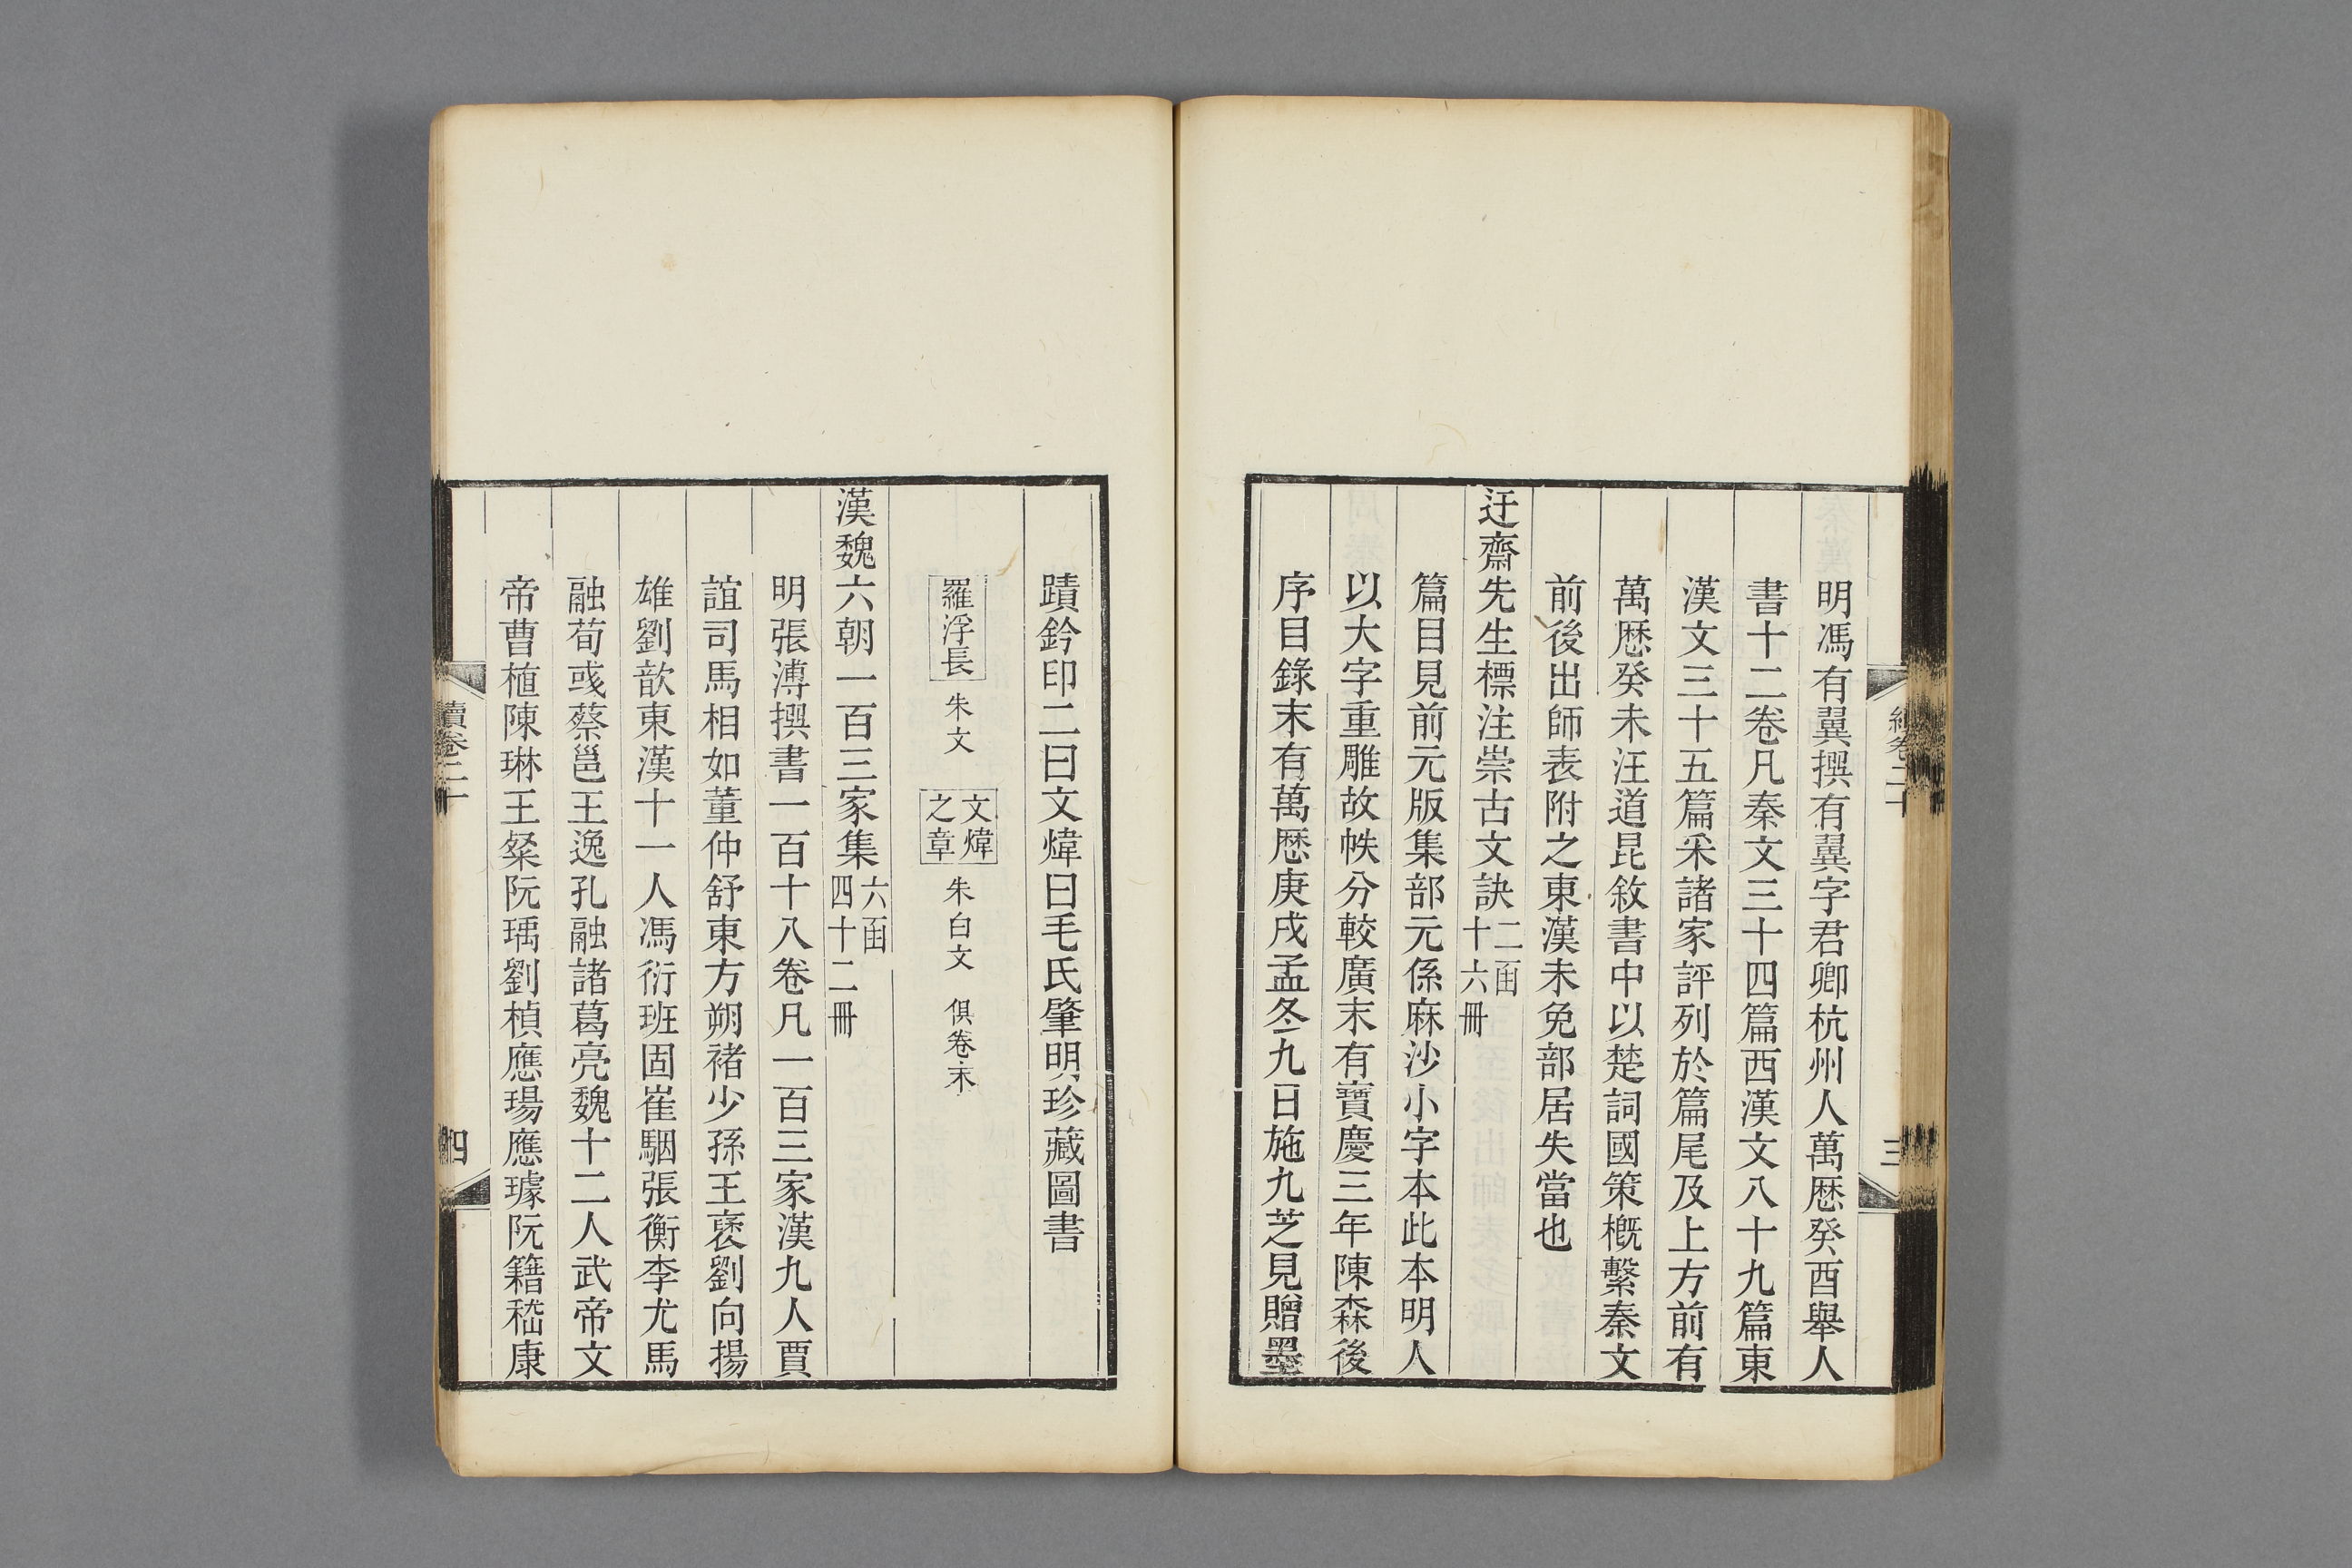 明馮有翼撰有翼字君卿杭州人萬厯癸酉舉人
書十二卷凡秦文三十四篇西漢文八十九篇東
漢文三十五篇采諸家評列於篇尾及上方前有
萬厯癸未汪道昆敘書中以楚詞國策槪繫秦文
前後出師表附之東漢未免部居失當也
迂齋先生標注崇古文訣二函十六冊
篇目見前元版集部元係麻沙小字本此本明人
以大字重雕故帙分較廣末有寶慶三年陳森後
序目錄末有萬厯庚戌孟冬九日施九芝見贈墨
蹟鈐印二曰文煒曰毛氏肇明珍藏圖書
羅浮長 朱文 文煒之章 朱白文 俱卷末
漢魏六朝一百三家集六函四十二冊
明張溥撰書一百十八卷凡一百三家漢九人賈
誼司馬相如董仲舒東方朔褚少孫王褒劉向揚
雄劉歆東漢十一人馮衍班固崔駰張衡李尤馬
融荀彧蔡邕王逸孔融諸葛亮魏十二人武帝文
帝曹植陳琳王粲阮瑀劉楨應瑒應璩阮籍嵇康
續卷二十
四